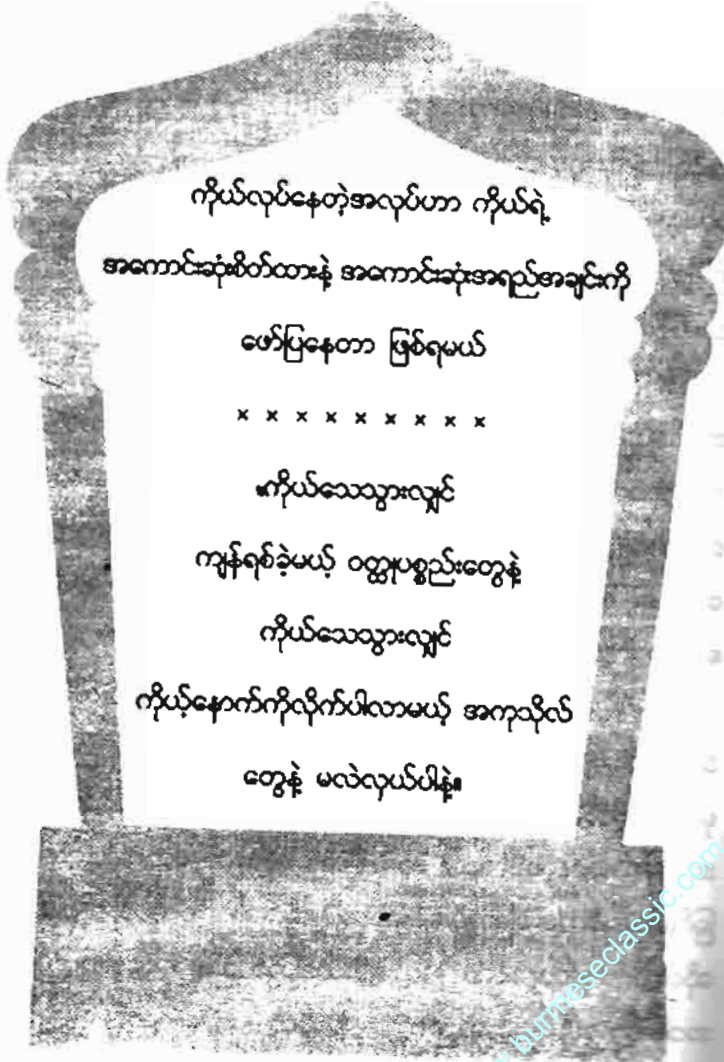 ကိုယ်လုပ်နေတဲ့အလုပ်ဟာ ကိုယ်ရဲ့
အကောင်းဆုံးစိတ်ထားနဲ့ အကောင်းဆုံးအရည်အချင်းကို
ဖော်ပြနေတာ ဖြစ်ရမယ်
× × × × × × × × ×
ကိုယ်သေသွားလျှင်
ကျန်ရစ်ခဲ့မယ့် ဝတ္ထုပစ္စည်းတွေနဲ့
ကိုယ်သေသွားလျှင်
ကိုယ့်နောက်ကိုလိုက်ပါလာမယ့် အကုသိုလ်
တွေနဲ့ မလဲလှယ်ပါနဲ့။
burmeseclassic.com